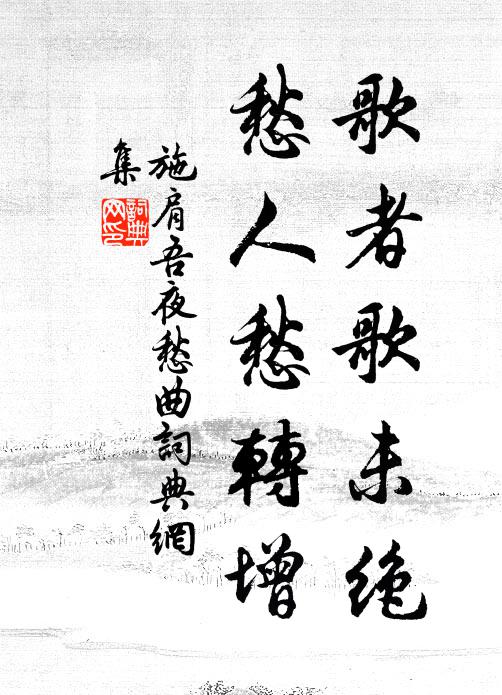 歌者歌未绝
愁人愁轉增
施肩吾夜愁曲詞典網
集
詞典
网印